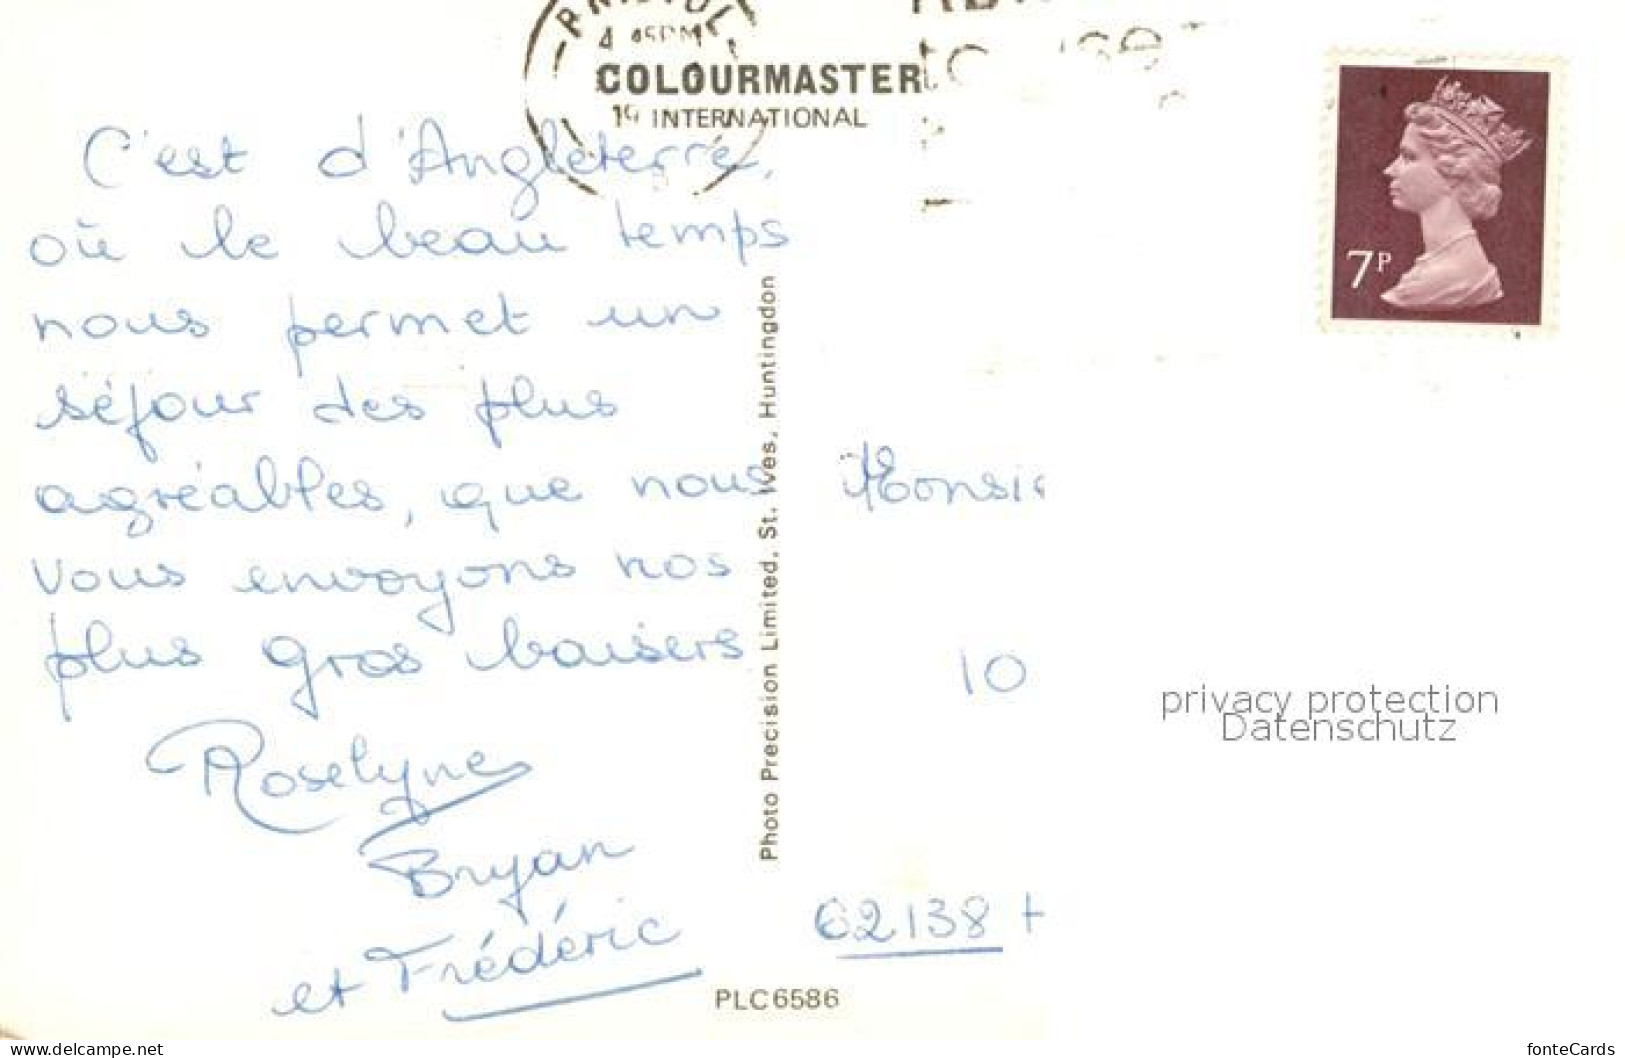 BRISTOL
4 45PM
19
COLOURMASTER
INTERNATIONAL
7P
C'est d'Angleterre,
où le beau temps
nous permet un
séjour des plus
agréables, que nous
vous envoyons nos
plus gros baisers
Roselyne
Bryan
et Frédéric
Photo Precision Limited, St. Ives, Huntingdon
Monsie
10
62138 H
PLC6586
privacy protection
Datenschutz
www.delcampe.net
fonteCards